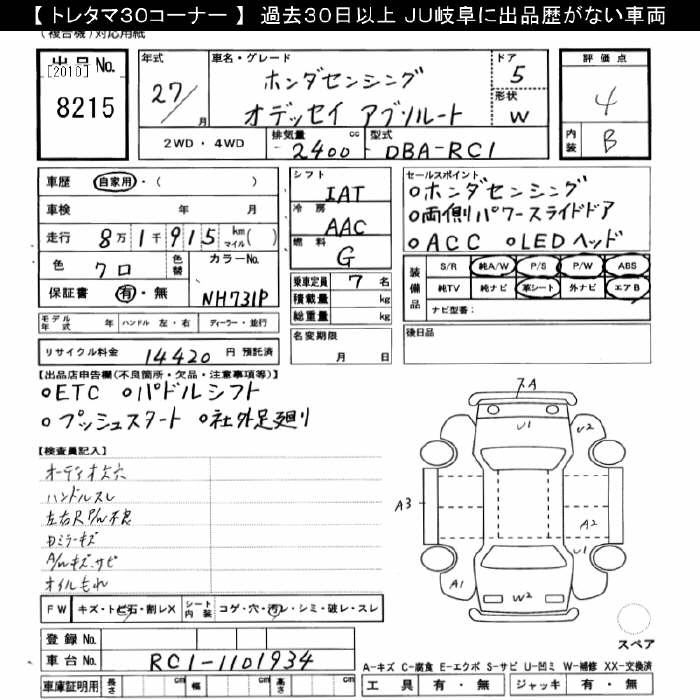 【 トレタマ３０コーナー 】 過去３０日以上 ＪＵ岐阜に出品歴がない車両
(複合機)対応用紙
出品No.
[2010]
8215
年式 車名・グレード ドア
27/月 ホンダセンシング 5
オデッセイ アブソルート 形状 W
2WD・4WD 排気量 2400 cc 型式 DBA-RC1
評価点
4
内装 B
車歴 自家用・( )
車検 年 月
走行 8万1千915 km マイル( )
色 クロ 色替 カラーNo.
保証書 有・無 NH731P
シフト IAT
冷房 AAC
燃料 G
乗車定員 7 名
積載量 kg
総重量 kg
名変期限
月 日
セールスポイント
○ホンダセンシング
○両側パワースライドドア
○ACC ○LEDヘッド
装備品 S/R 純A/W P/S P/W ABS
純TV 純ナビ 革シート 外ナビ エアB
ナビ型番:
後日品
モデル年式 年 ハンドル 左・右 ディーラー・並行
リサイクル料金 14420 円 預託済
【出品店申告欄(不良箇所・欠品・注意事項等)】
○ETC ○パドルシフト
○プッシュスタート ○社外足廻り
【検査員記入】
オーディオ欠穴
ハンドルスレ
左右R P/W不良
ミラーキズ
A/Wキズ.サビ
オイルもれ
スA
U1 U2
A3 A2
U1
A1 W2
スペア
FW キズ・トビ石・割レX シート内装 コゲ・穴・汚レ・シミ・破レ・スレ
登録No.
車台No. RC1-1101934
車庫証明用 長さ cm 幅 cm 高さ cm
A-キズ C-腐食 E-エクボ S-サビ U-凹ミ W-補修 XX-交換済
工具 有・無 ジャッキ 有・無